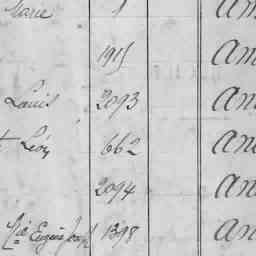 Marie 1 am
1915 am
Louis 2093 am
t Léon 662 am
2094 am
Eugène Joseph 1398 am